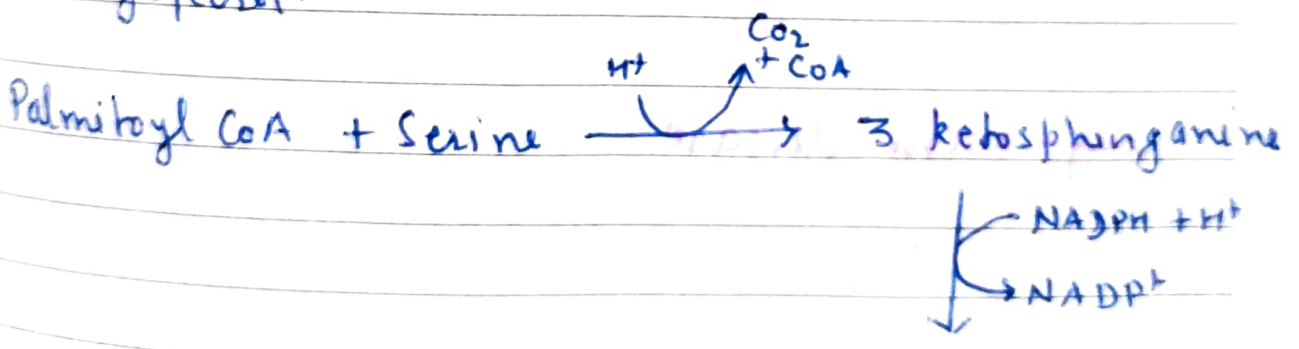 CO2
H+ + CoA
Palmitoyl CoA + Serine → 3 ketosphinganine
NADPH + H+
→ NADP+